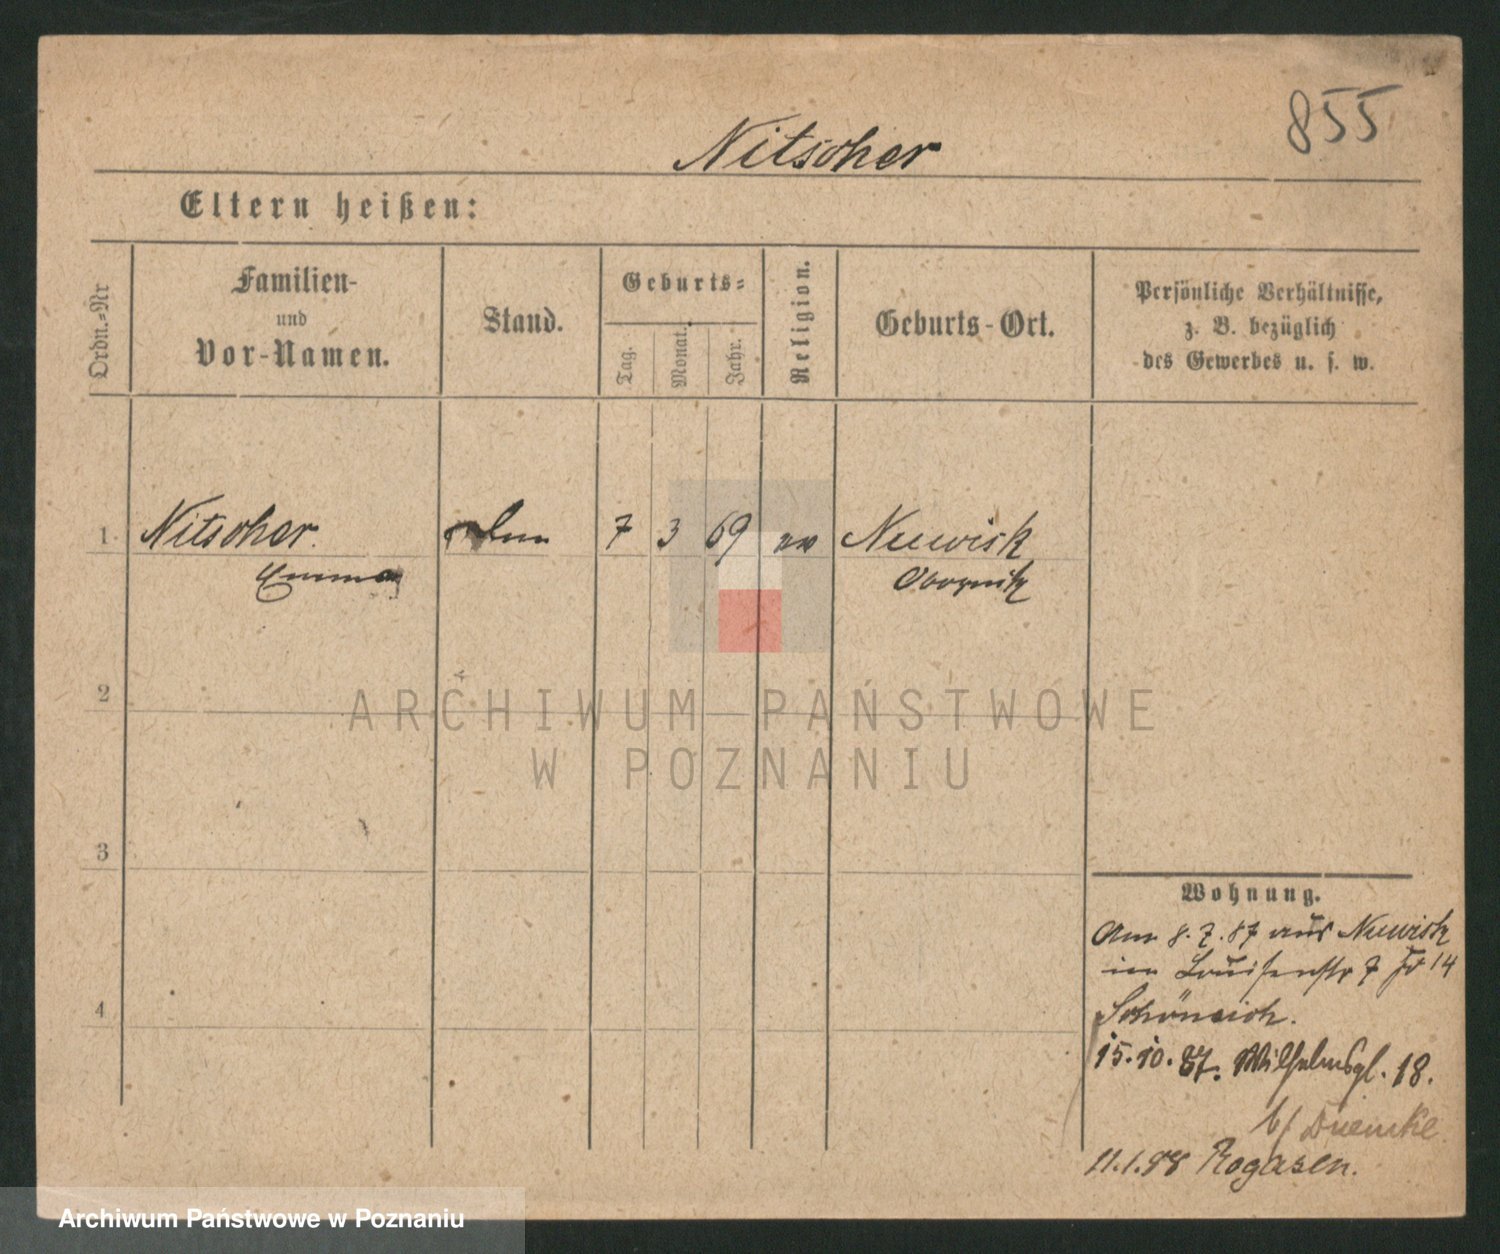 855
Nitscher
Eltern heißen:
Ordn.-Nr
Familien-
und
Vor-Namen.
Stand.
Geburts-
Tag.
Monat.
Jahr.
Religion.
Geburts-Ort.
Persönliche Verhältnisse,
z. B. bezüglich
des Gewerbes u. s. w.
1 Nitscher 7 3 69 ev Neuwisk
Emma Obornik
2
ARCHIWUM PAŃSTWOWE
W POZNANIU
3
4
Wohnung.
Am 8.7.87 aus Neuwisk
in Louisenstr 7 14
Schöneich.
15.10.87. Wilhelmspl. 18.
b/
11.1.88 Rogasen.
Archiwum Państwowe w Poznaniu